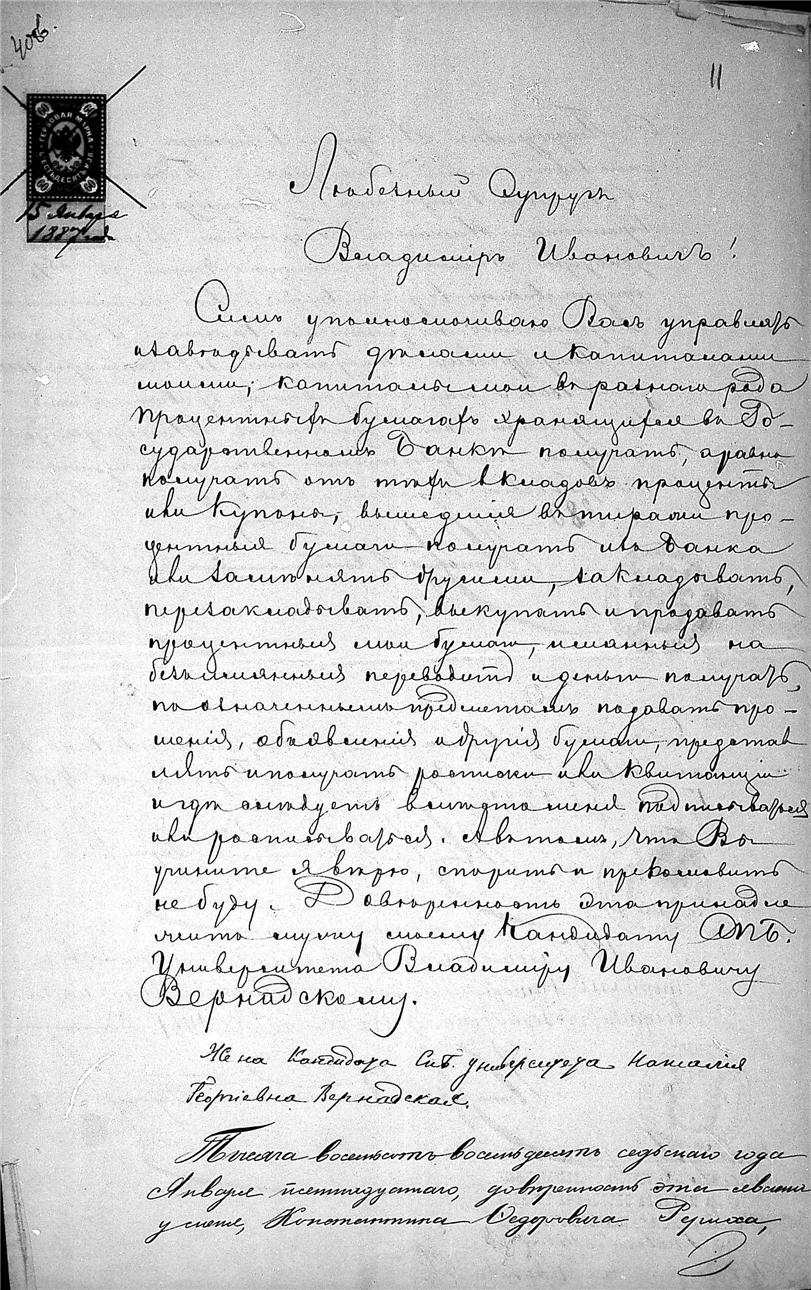 40об.
11
60 60
ГЕРБОВАЯ МАРКА
ШЕСТЬДЕСЯТЪ КОП.
60 60
15 Января
1887 года
Любезный Супругъ
Владиміръ Ивановичъ!
Симъ уполномочиваю Васъ управлять
и завѣдывать дѣлами и капиталами
моими; капиталы мои въ разнаго рода
процентныхъ бумагахъ хранящихся въ Го-
сударственномъ Банкѣ получать, а равно
получать отъ тѣхъ вкладовъ проценты
или купоны, вышедшія въ тиражи про-
центныя бумаги получать изъ Банка
или замѣнять другими, закладывать,
перезакладывать, выкупать и продавать
процентныя мои бумаги, именныя на
безъимянныя переводить и деньги получать,
по означеннымъ предметамъ подавать про-
шенія, объявленія и другія бумаги, представ
лять и получать росписки или квитанціи
и гдѣ слѣдуетъ вмѣсто меня подписываться
или росписываться. А въ томъ, что Вы
учините я вѣрю, спорить и прекословить
не буду. Довѣренность эта принадле
житъ мужу моему Кандидату СПБ.
Университета Владиміру Ивановичу
Вернадскому.
Жена Кандидата СПБ. университета Наталія
Георгіевна Вернадская.
Тысяча восемьсотъ восемьдесятъ седьмаго года
Января пятнадцатаго, довѣренность эта явлена
у меня, Константина Федоровича Рериха,